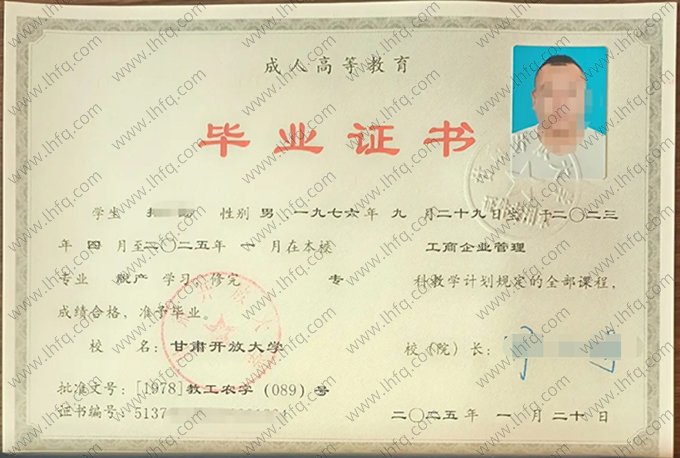 成人高等教育
毕业证书
学生 性别 男 一九七六年 九 月二十九日生 于二〇二三
年 四 月至二〇二五年 一 月在本校 工商企业管理
专业 脱产 学习 修完 专 科教学计划规定的全部课程,
成绩合格，准予毕业。
校 名: 甘肃开放大学 校（院）长:
批准文号: [1978]教工农字 (089) 号
证书编号: 5137
二〇二五年 一 月二十日
www.lhfq.com